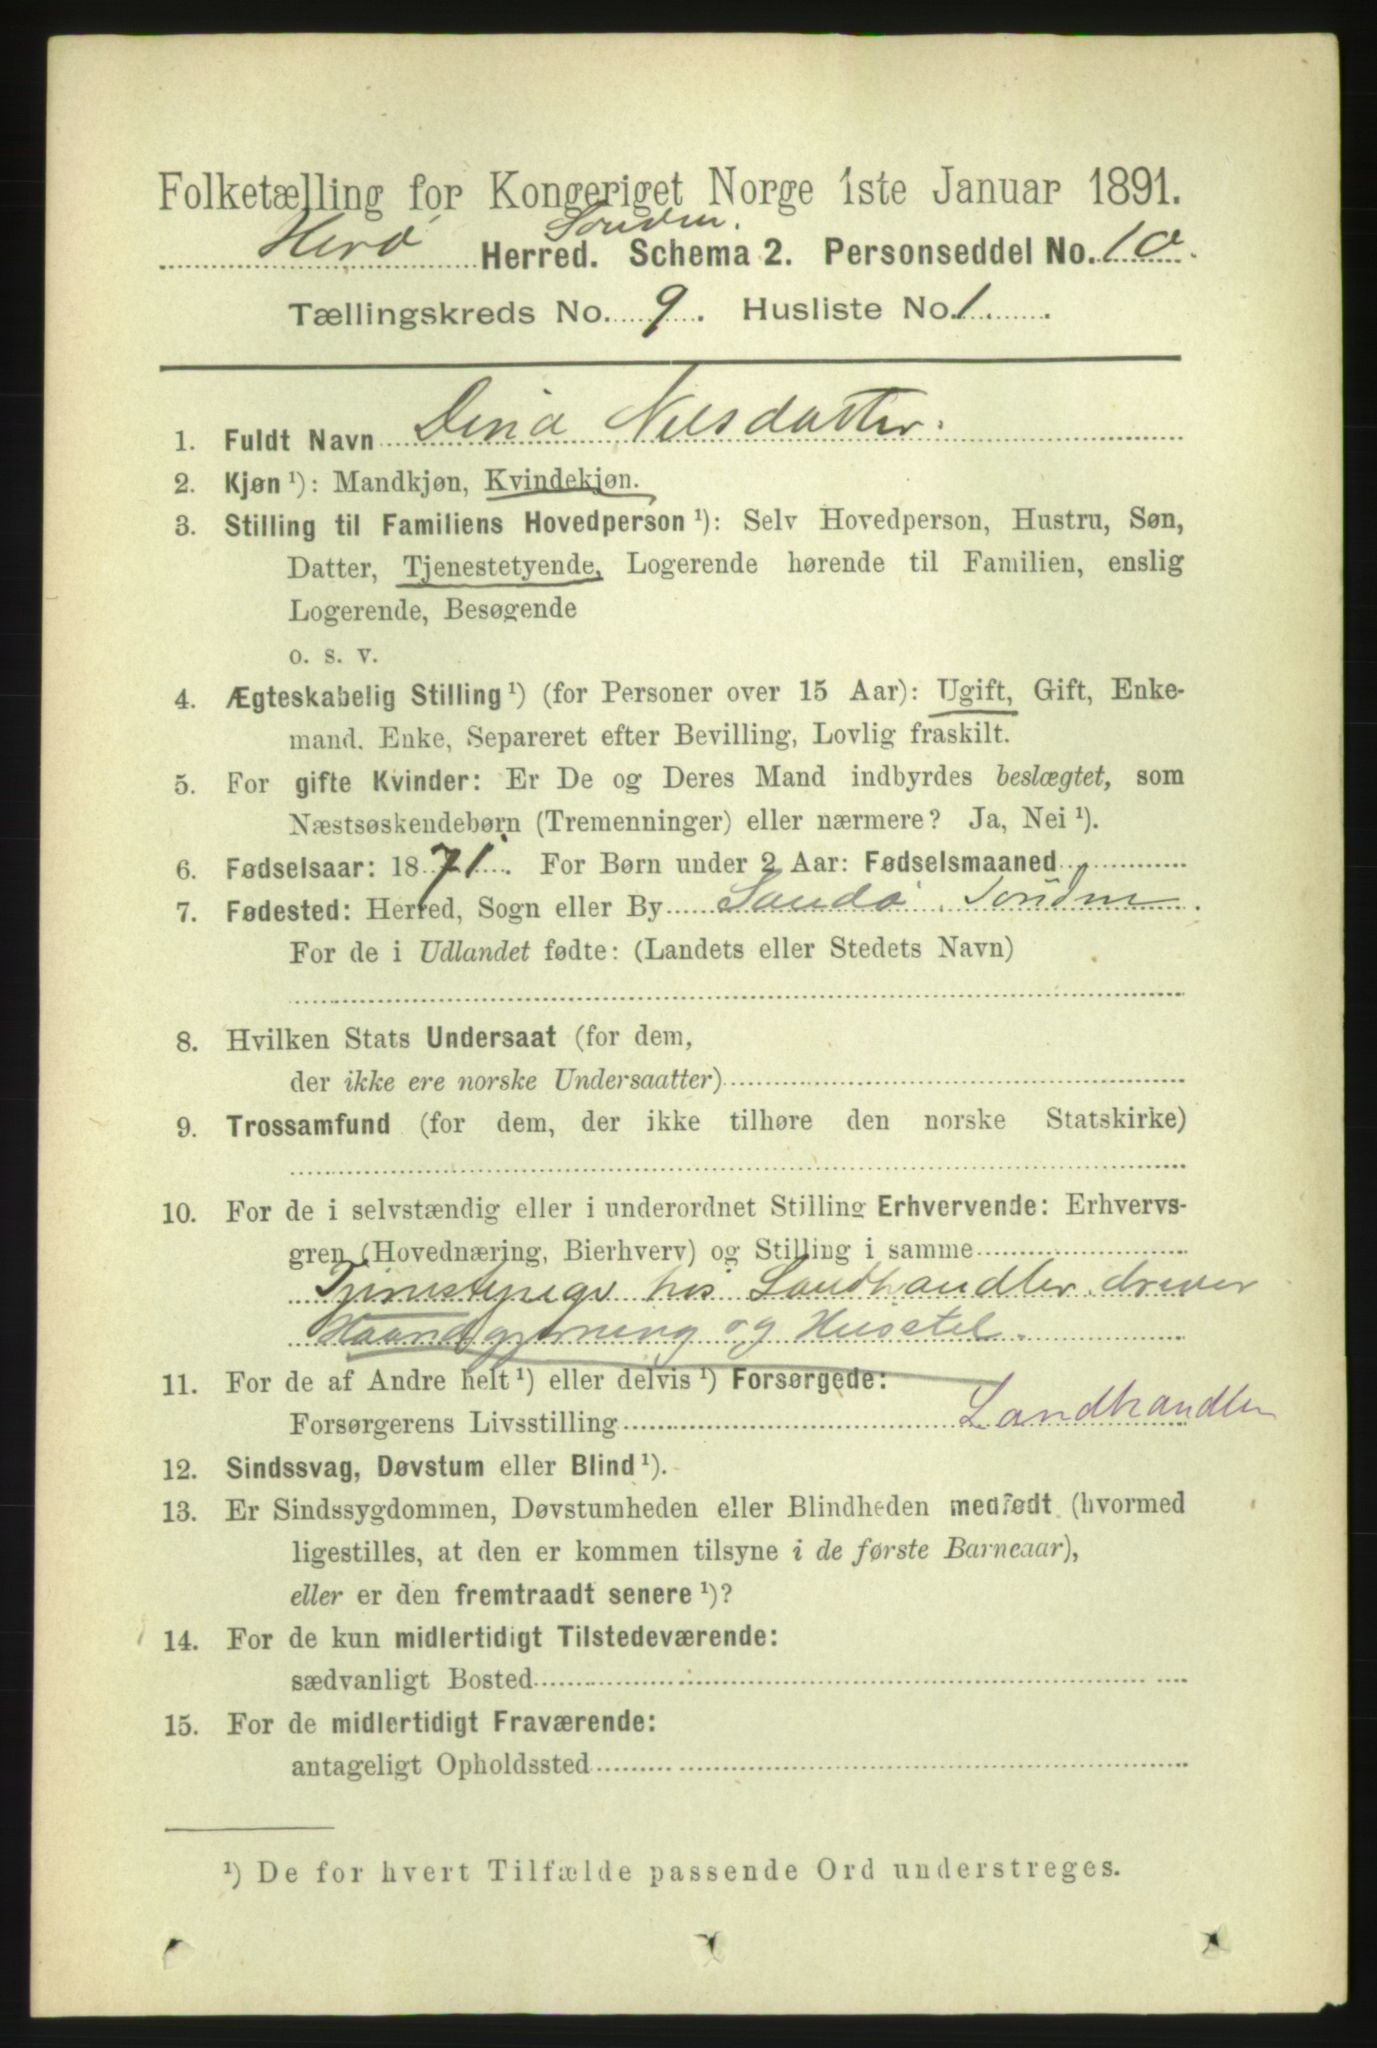 Folketælling for Kongeriget Norge 1ste Januar 1891.
Herø Herred. Schema 2. Personseddel No. 10.
Tællingskreds No. 9. Husliste No. 1.
1. Fuldt Navn Dina Nilsdatter.
2. Kjøn ¹): Mandkjøn, Kvindekjøn.
3. Stilling til Familiens Hovedperson ¹): Selv Hovedperson, Hustru, Søn,
Datter, Tjenestetyende, Logerende hørende til Familien, enslig
Logerende, Besøgende
o. s. v.
4. Ægteskabelig Stilling ¹) (for Personer over 15 Aar): Ugift, Gift, Enke-
mand, Enke, Separeret efter Bevilling, Lovlig fraskilt.
5. For gifte Kvinder: Er De og Deres Mand indbyrdes beslægtet, som
Næstsøskendebørn (Tremenninger) eller nærmere? Ja, Nei ¹).
6. Fødselsaar: 1871. For Børn under 2 Aar: Fødselsmaaned
7. Fødested: Herred, Sogn eller By Sandø Søndm
For de i Udlandet fødte: (Landets eller Stedets Navn)
8. Hvilken Stats Undersaat (for dem,
der ikke ere norske Undersaatter)
9. Trossamfund (for dem, der ikke tilhøre den norske Statskirke)
10. For de i selvstændig eller i underordnet Stilling Erhvervende: Erhvervs-
gren (Hovednæring, Bierhverv) og Stilling i samme
hos Landhandler driver
Haandgjerning og Husstel.
11. For de af Andre helt ¹) eller delvis ¹) Forsørgede:
Forsørgerens Livsstilling Landhandler
12. Sindssvag, Døvstum eller Blind ¹).
13. Er Sindssygdommen, Døvstumheden eller Blindheden medfødt (hvormed
ligestilles, at den er kommen tilsyne i de første Barneaar),
eller er den fremtraadt senere ¹)?
14. For de kun midlertidigt Tilstedeværende:
sædvanligt Bosted
15. For de midlertidigt Fraværende:
antageligt Opholdssted
¹) De for hvert Tilfælde passende Ord understreges.